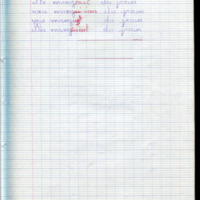 elle mangeait du pain
nous mangions du pain
vous mangiez du pain
elles mangeaient du pain